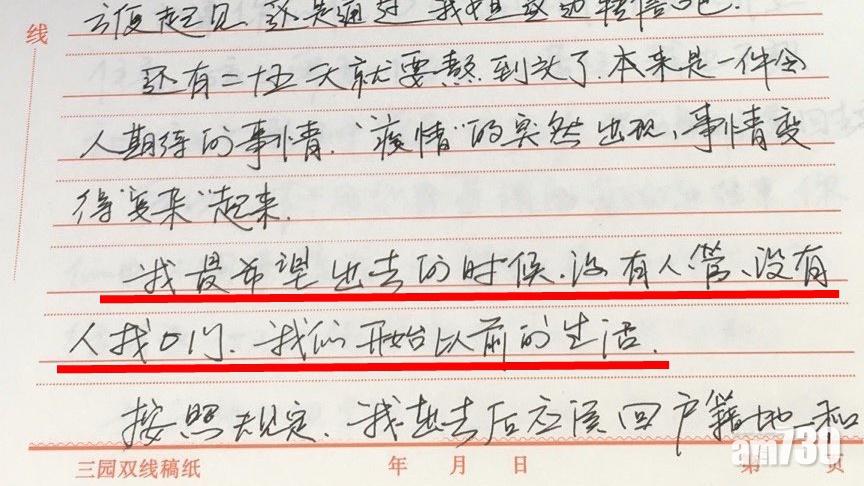 方便起见,还是通过我姐互动转信吧.
还有二十五天就要熬到头了.本来是一件令
人期待的事情."疫情"的突然出现,事情变
得"复杂"起来.
我最希望出去的时候.没有人管、没有
人找咱们.我们开始以前的生活.
按照规定.我出去后应该回户籍地 和
线
三园双线稿纸 年 月 日 第 页
am730